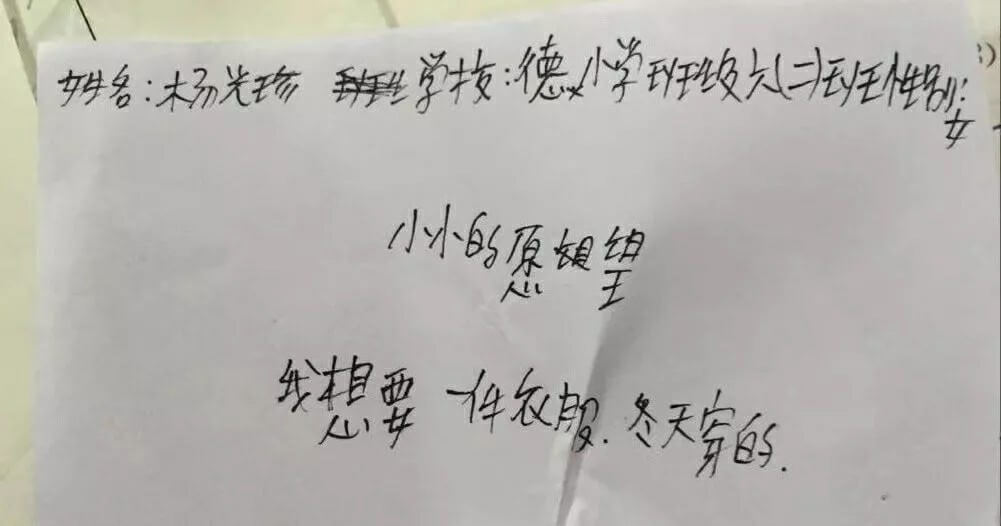 姓名:杨光珍 学校:德小学班级六(二)班性别:女
小小的愿望
我想要一件衣服.冬天穿的.